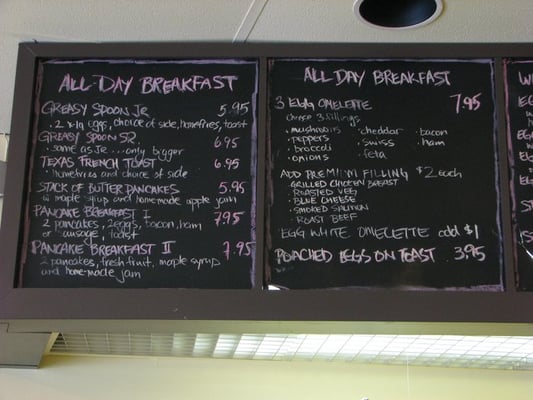 ALL-DAY BREAKFAST
GREASY SPOON JR. 5.95
eggs, choice of side, homefries, toast
GREASY SPOON SR. 6.95
same as Jr. ... only bigger
TEXAS FRENCH TOAST 6.95
homefries and choice of side
STACK OF BUTTER PANCAKES 5.95
w maple syrup and homemade apple jam
PANCAKE BREAKFAST I 7.95
2 pancakes, 2 eggs, bacon, ham
or sausage, toast
PANCAKE BREAKFAST II 7.95
2 pancakes, fresh fruit, maple syrup
and home-made jam
ALL DAY BREAKFAST
3 EGG OMELETTE 7.95
choose 3 fillings
• mushrooms • cheddar • bacon
• peppers • swiss • ham
• broccoli • feta
• onions
ADD PREMIUM FILLING $2 each
GRILLED CHICKEN BREAST
• ROASTED VEG
• BLUE CHEESE
• SMOKED SALMON
• ROAST BEEF
EGG WHITE OMELETTE add $1
POACHED EGGS ON TOAST 3.95